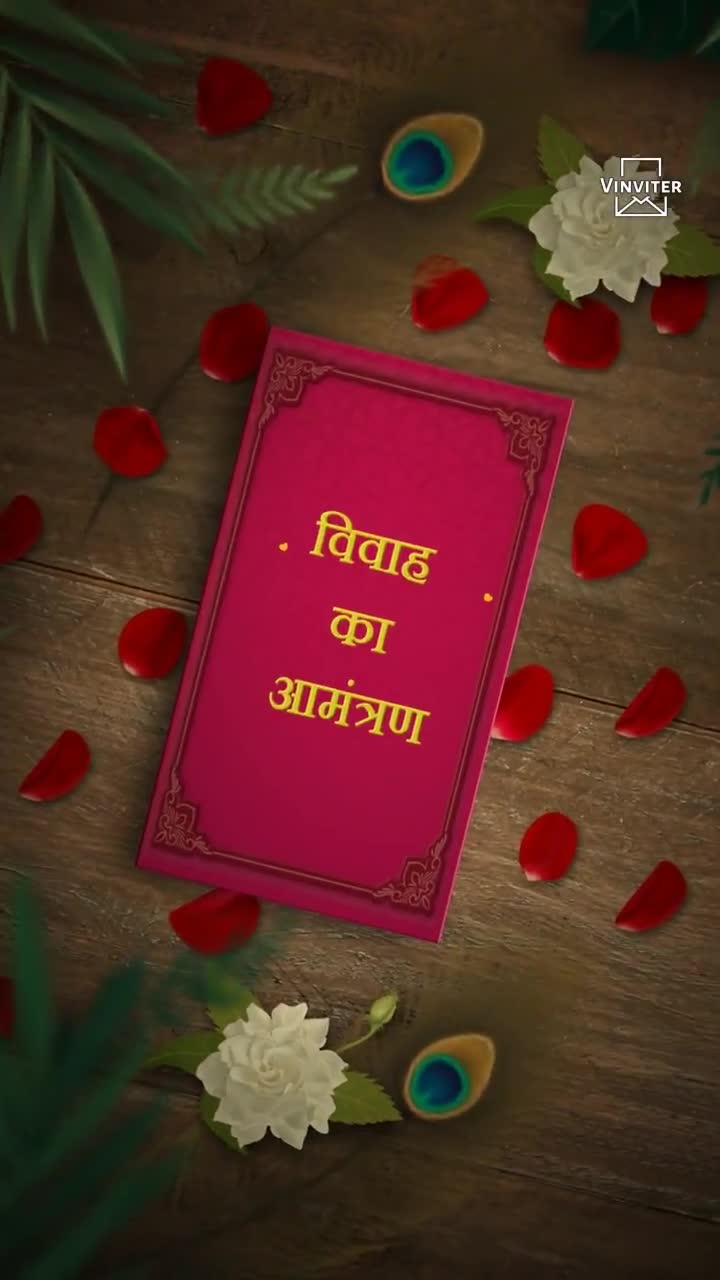 VINVITER
विवाह
का
आमंत्रण